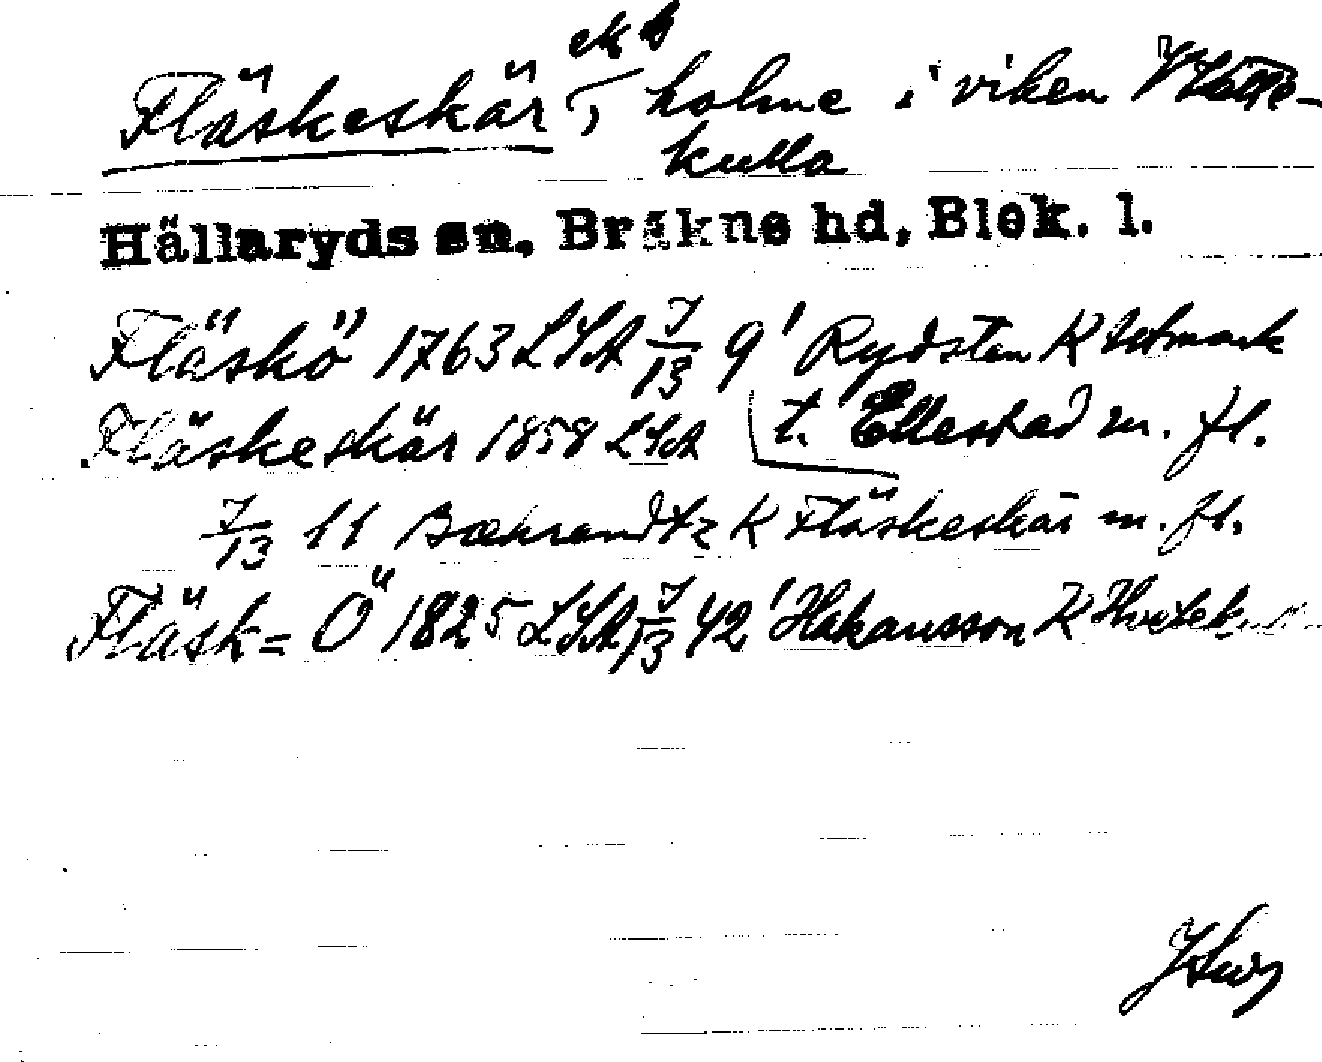 Fläskeskär, ekb holme i viken
kulla
Hällaryds sn, Bräkne hd, Blek. l.
Fläskö 1763 LSA 7/13 9' Rydsten K Utmark
Fläskeskär 1858 LSA t. Ellestad m. fl.
7/13 11 Bæhrendtz K Fläskeskär m. fl.
Fläsk= Ö 1825 LSA 7/13 42' Håkansson K